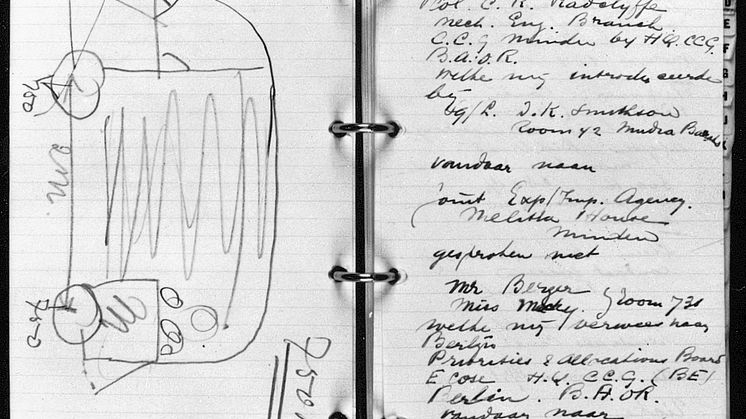 Col. C. R. Radclyffe
Mech. Eng. Branch
C.C.G Minden by H.Q. CCG.
B.A.O.R.
welke mij introduceerde
bij
J.K. Smithson
Room 42 Mudra
vandaar naar
Joint Exp/Imp. Agency.
Melitta House
Minden
gesproken met
Mr Berger
Miss Room 731
welke mij verwees naar
Berlijn
Priorities & Allocations Board
Ecose H.Q. C.C.G. (BE)
Berlin. B.A.O.R.
vandaar naar
750
750
D
E
F
G
H